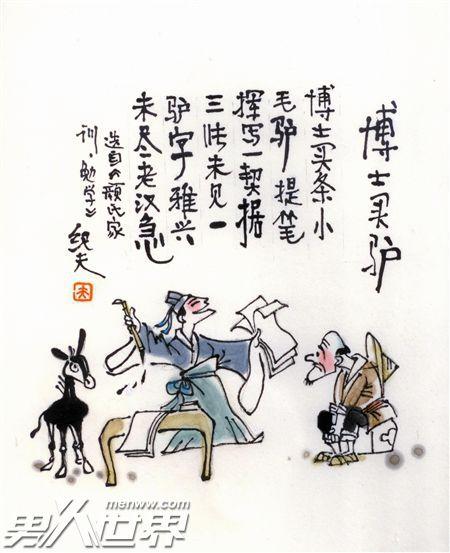 博士买驴
博士买条小
毛驴提笔
挥写一契据
三张未见一
驴字雅兴
未尽老汉急
选自《颜氏家
训·勉学》
menww.com
男人世界